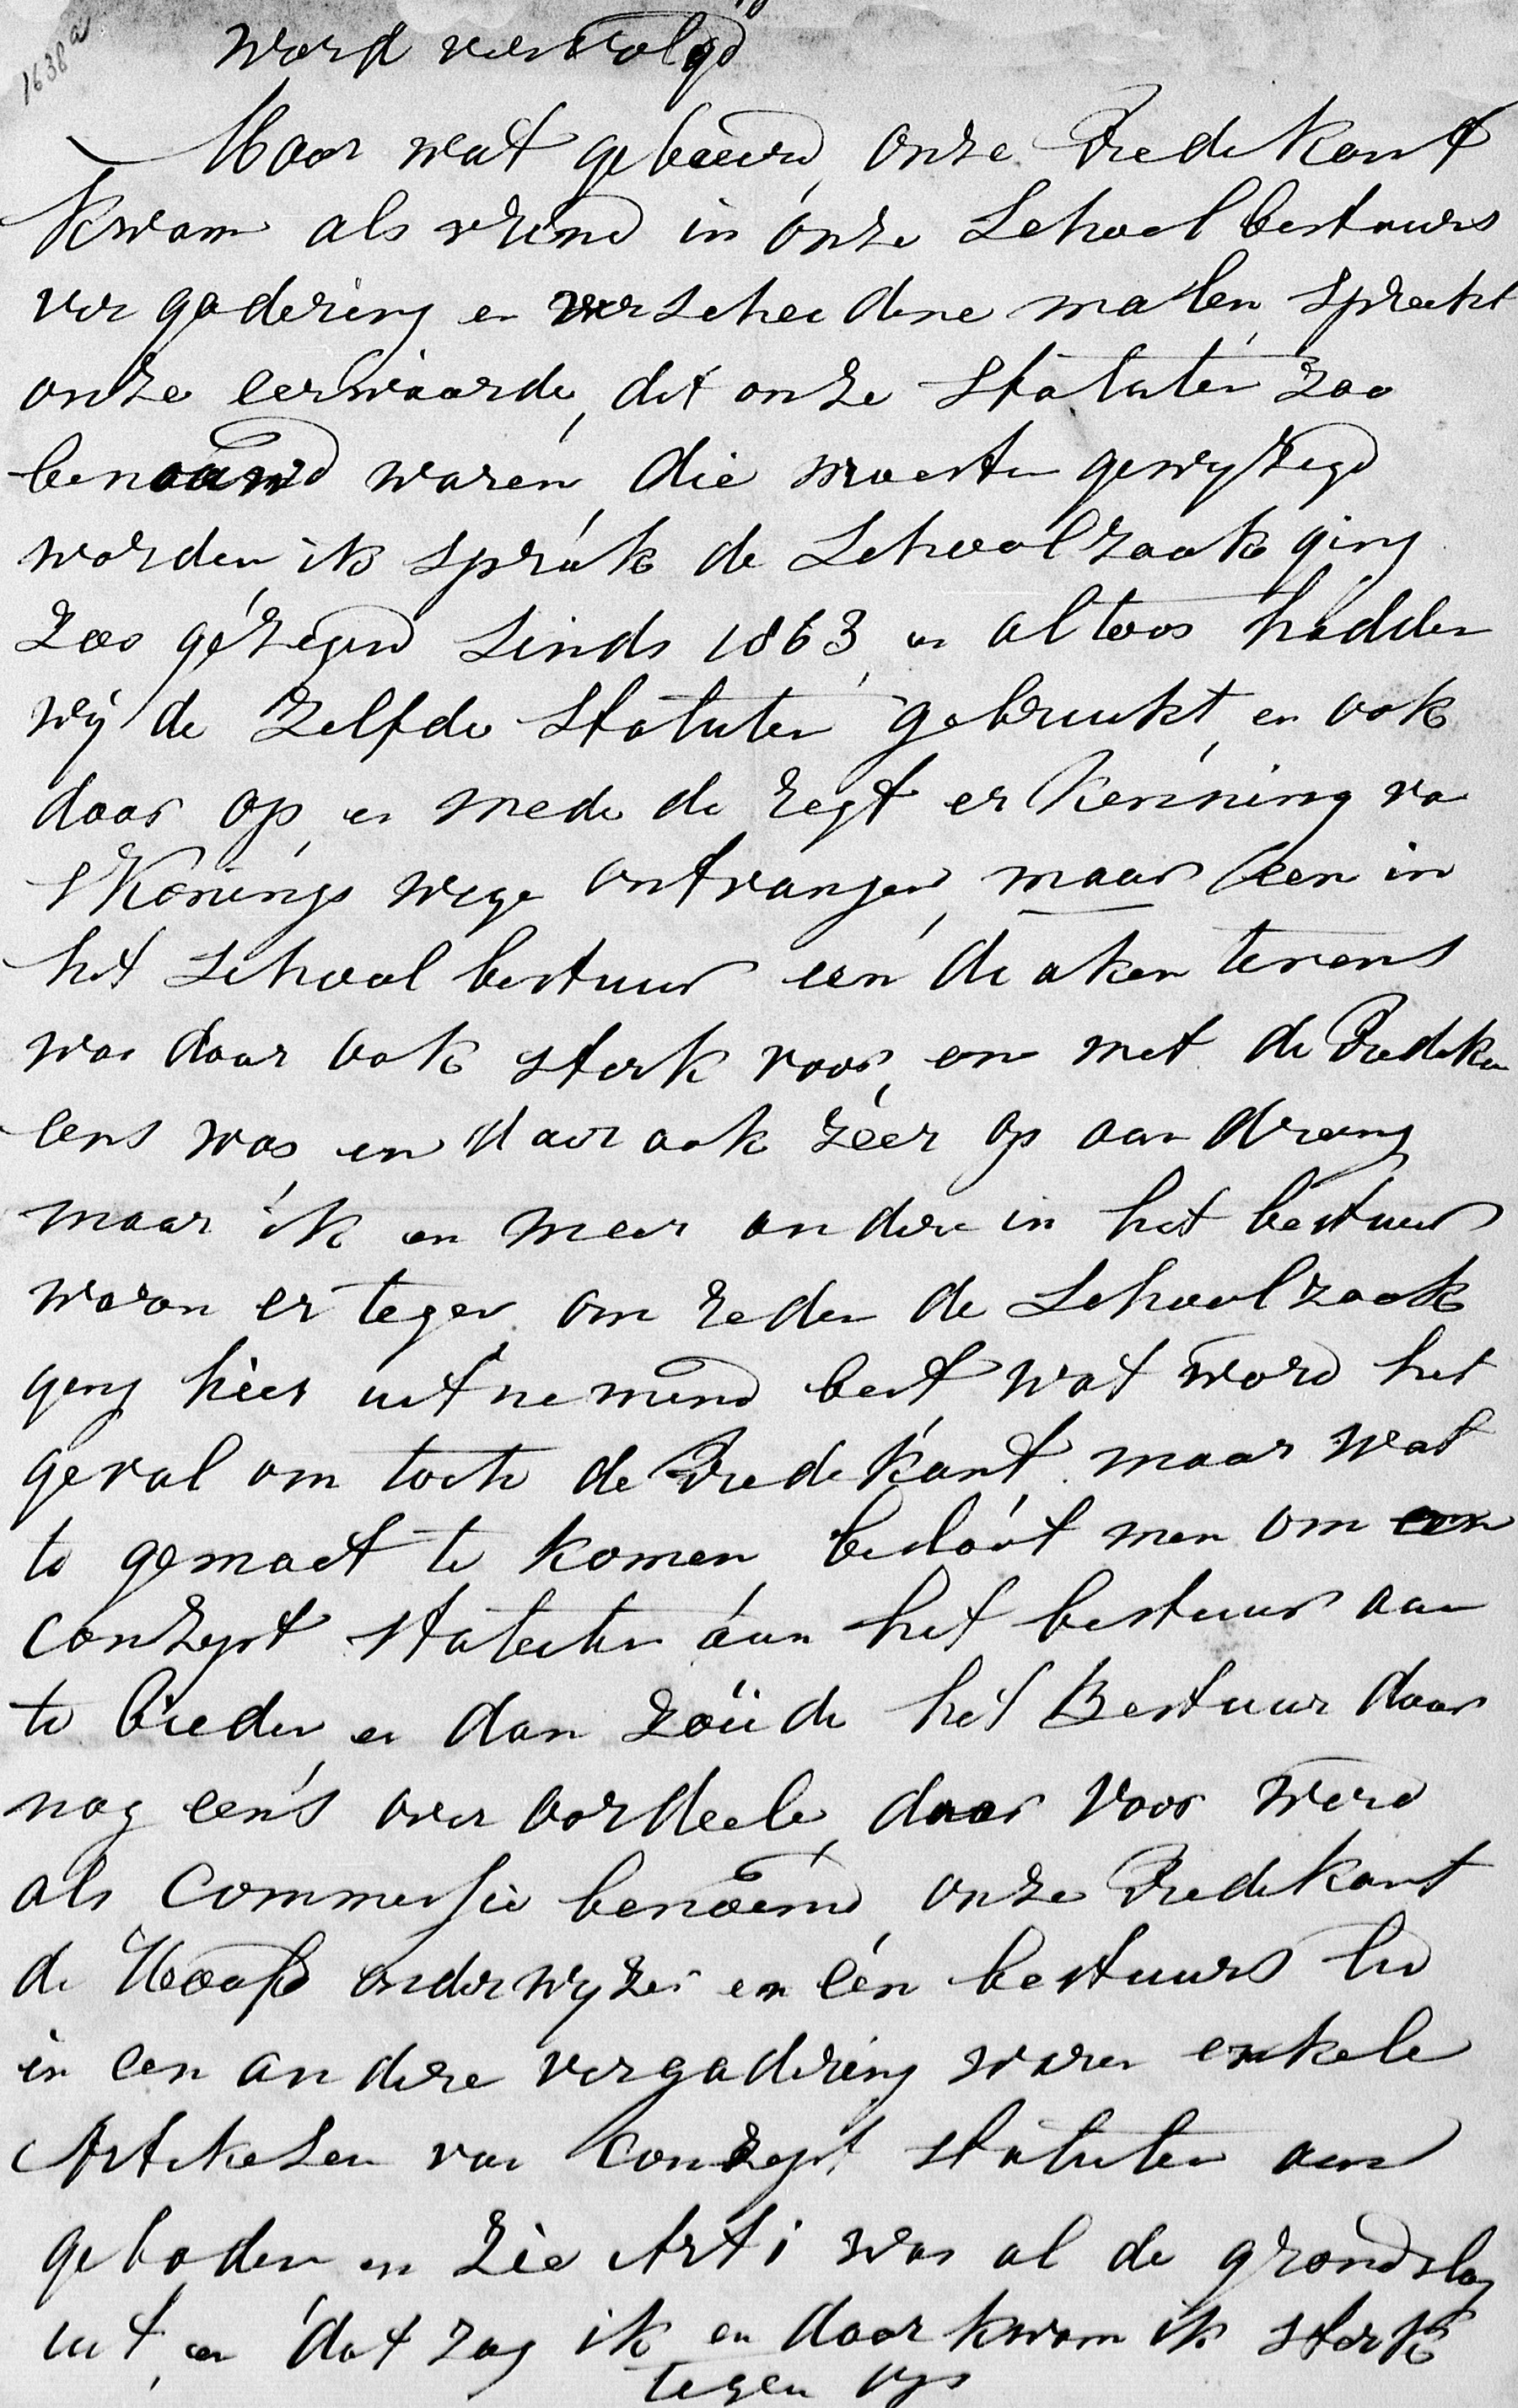 1638a
word vervolgd
Maar wat gebeurd, onze Predikant
kwam als vriend in onze School bestuurs
ver gadering en verscheidene malen, spreekt
onze eerwaarde, dat onze Statuten zoo
benaamd waren, die moesten gewyzegd
worden ik sprak de Schoolzaak ging
zoo gezegend Sinds 1863, en altoos hadden
wij de zelfde Statuten gebruikt, en ook
daar op, en mede de regt erkenning va
sKonings wege ontvangen, maar een in
het School bestuur een diaken tevens
was daar ook sterk voor, en met de Predikan
eens was en daar ook zéér op aan drang
maar ik en meer andere in het bestuur
waren er tegen om reden de Schoolzaak
ging hier uitnemend best wat word het
geval om toch de Predikant maar wat
te gemoet te komen, besloot men om een
conzept Statuten aan het bestuur aan
te bieden, en dan zoude het Bestuur daar
nog eens over oordeele, daar voor werd
als Commissie benoemd onze Predikant
de Hoofd onderwyzer en één bestuurs lid
in een andere vergadering waren enkele
Artikelen van conzept statuten aan
geboden en zie Art 1 was al de grondslag
uit, en dat zag ik en daar kwam ik sterk
tegen op